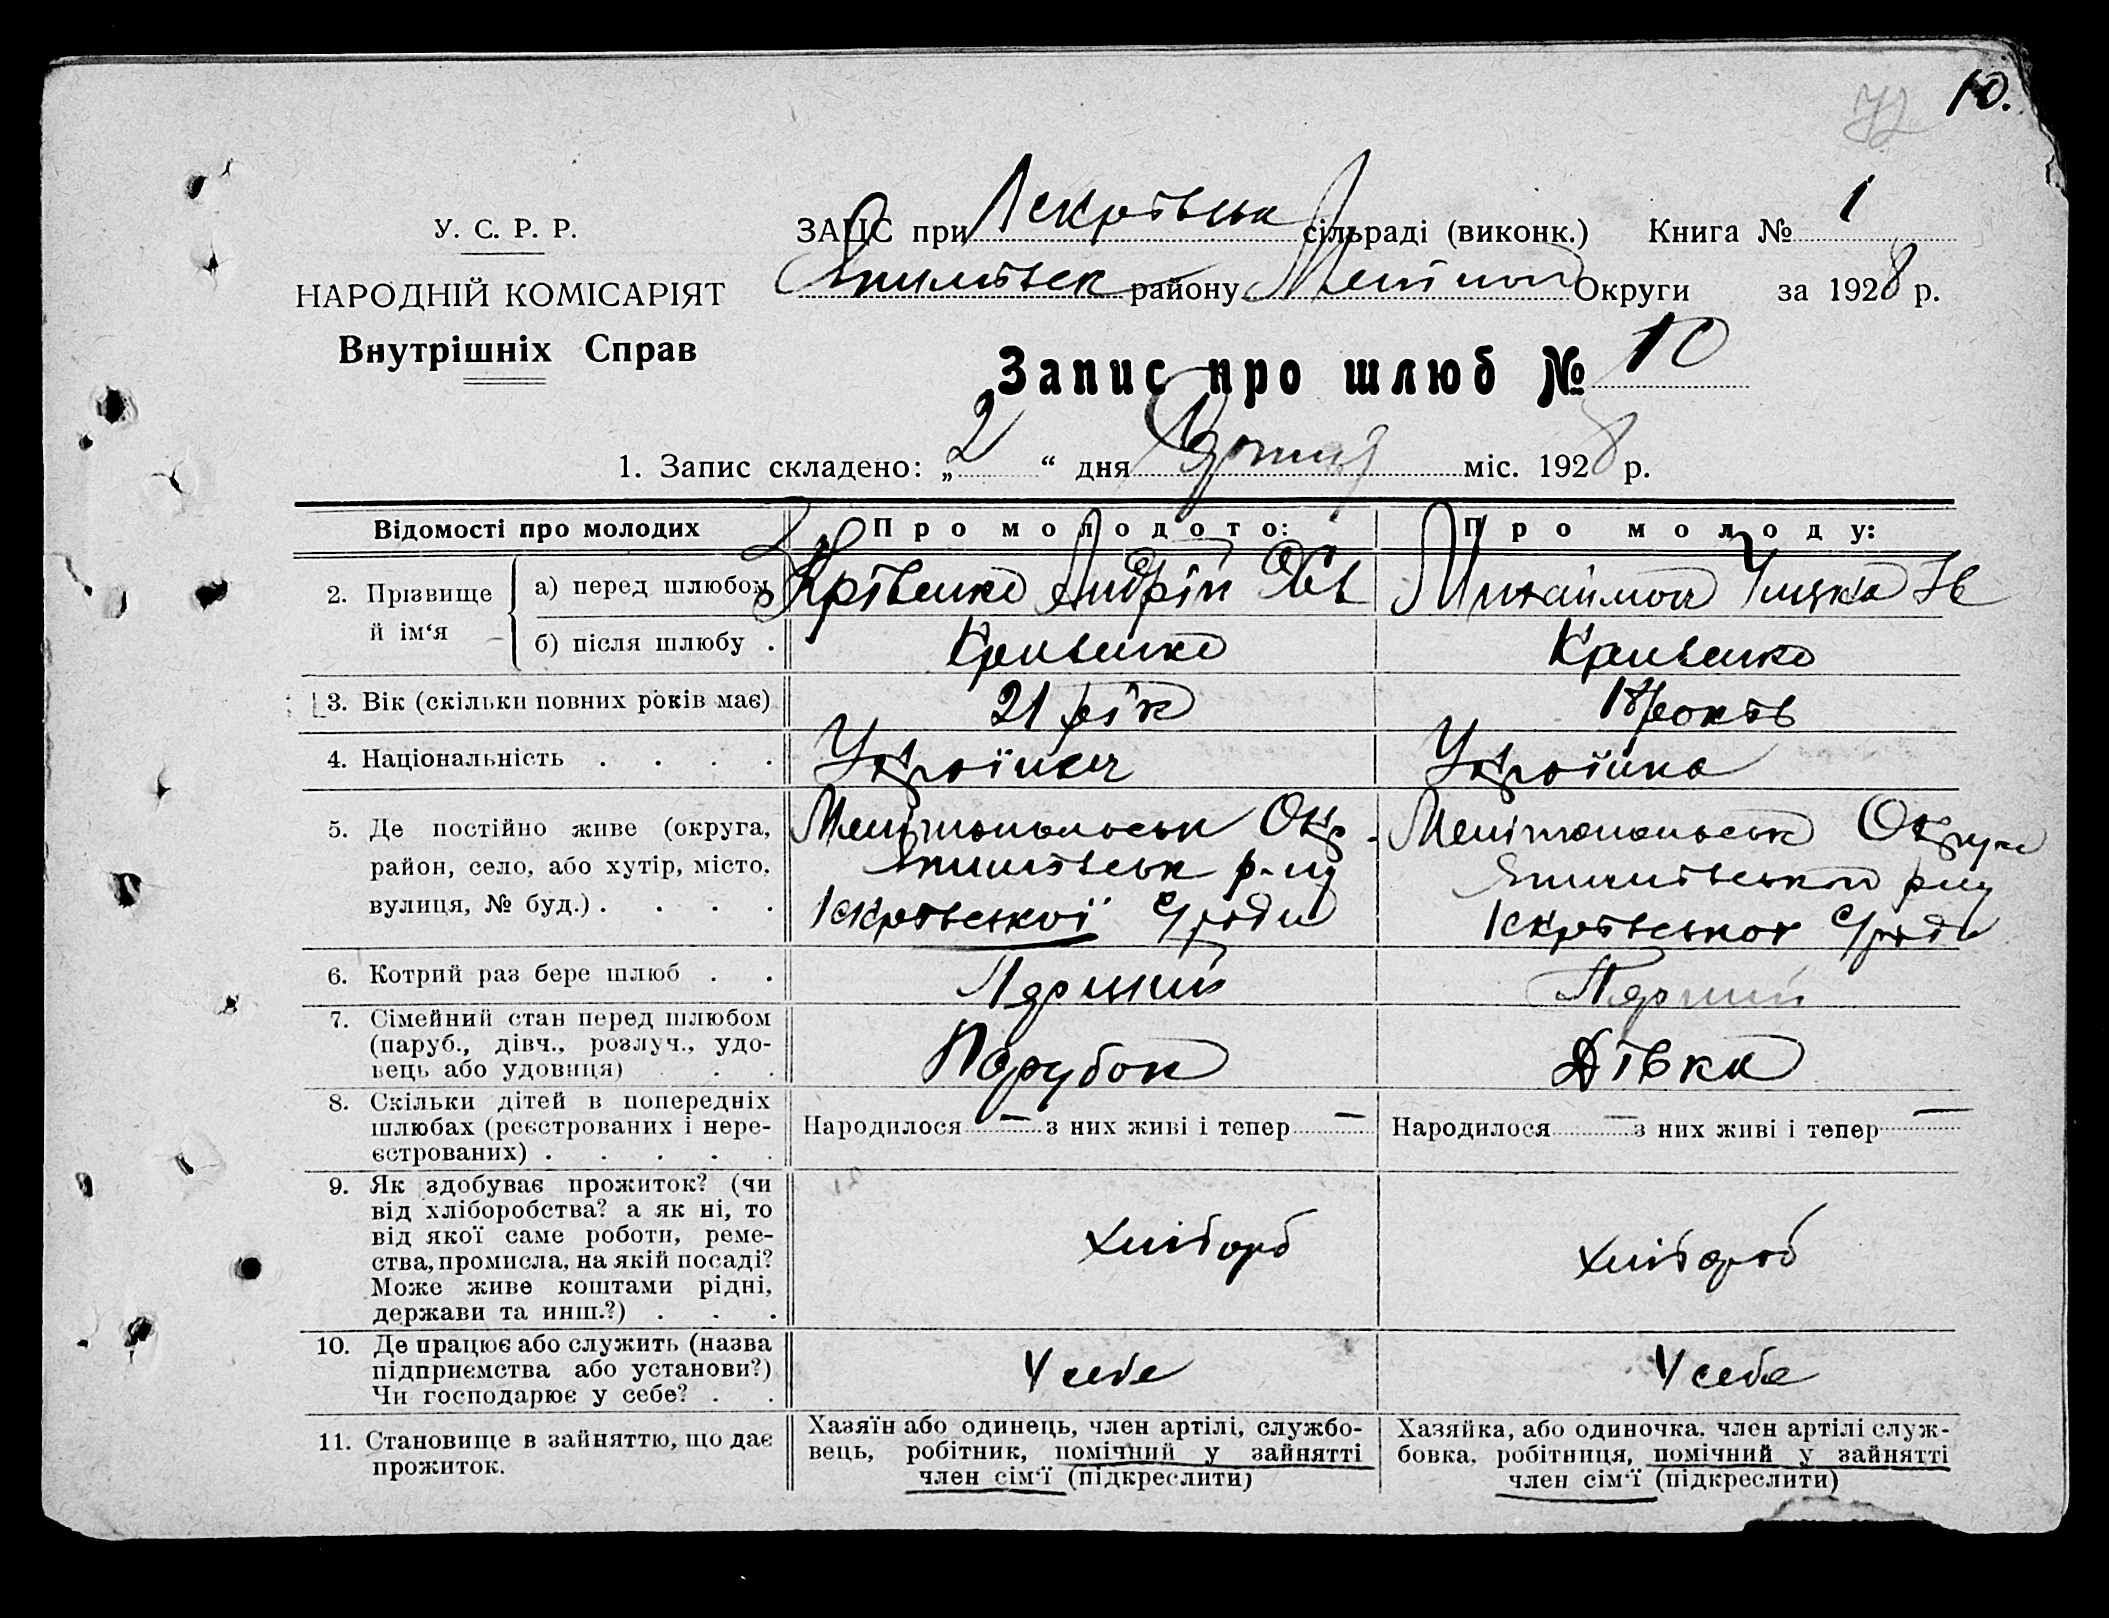 72 10.
У. С. Р. Р.
НАРОДНІЙ КОМІСАРІЯТ
Внутрішніх Справ
ЗАЦС при Іскрівська сільраді (виконк.) Книга № 1
району Меліпол Округи за 1928 р.
Запис про шлюб № 10
1. Запис складено: „2“ дня міс. 1928 р.
Відомості про молодих
Про молодого:
Про молоду:
2. Прізвище й ім‘я
а) перед шлюбом
Крівенко Андрій
б) після шлюбу .
Кривенко
Кривенко
3. Вік (скільки повних років має)
21 рік
18 років
4. Національність . . . .
Українец
Українка
5. Де постійно живе (округа,
район, село, або хутір, місто,
вулиця, № буд.) . . . .
Мелітопольськ Окр.
р-ну
Іскрівської С/ради
Мелітопольськ Округи
р-ну
Іскрівської С/ради
6. Котрий раз бере шлюб . .
Перший
Перший
7. Сімейний стан перед шлюбом
(паруб., дівч., розлуч., удо-
вець або удовиця) . .
Парубок
Дівка
8. Скільки дітей в попередніх
шлюбах (реєстрованих і нере-
єстрованих) . . . . .
Народилося — з них живі і тепер —
Народилося — з них живі і тепер —
9. Як здобуває прожиток? (чи
від хліборобства? а як ні, то
від якої саме роботи, реме-
ства, промисла, на якій посаді?
Може живе коштами рідні,
держави та инш.?) . . .
хлібороб
хлібороб
10. Де працює або служить (назва
підприємства або установи?)
Чи господарює у себе? . .
У себе
У себе
11. Становище в зайняттю, що дає
прожиток.
Хазяїн або одинець, член артілі, службо-
вець, робітник, помічний у зайнятті
член сім‘ї (підкреслити)
Хазяйка, або одиночка, член артілі служ-
бовка, робітниця, помічний у зайнятті
член сім‘ї (підкреслити)